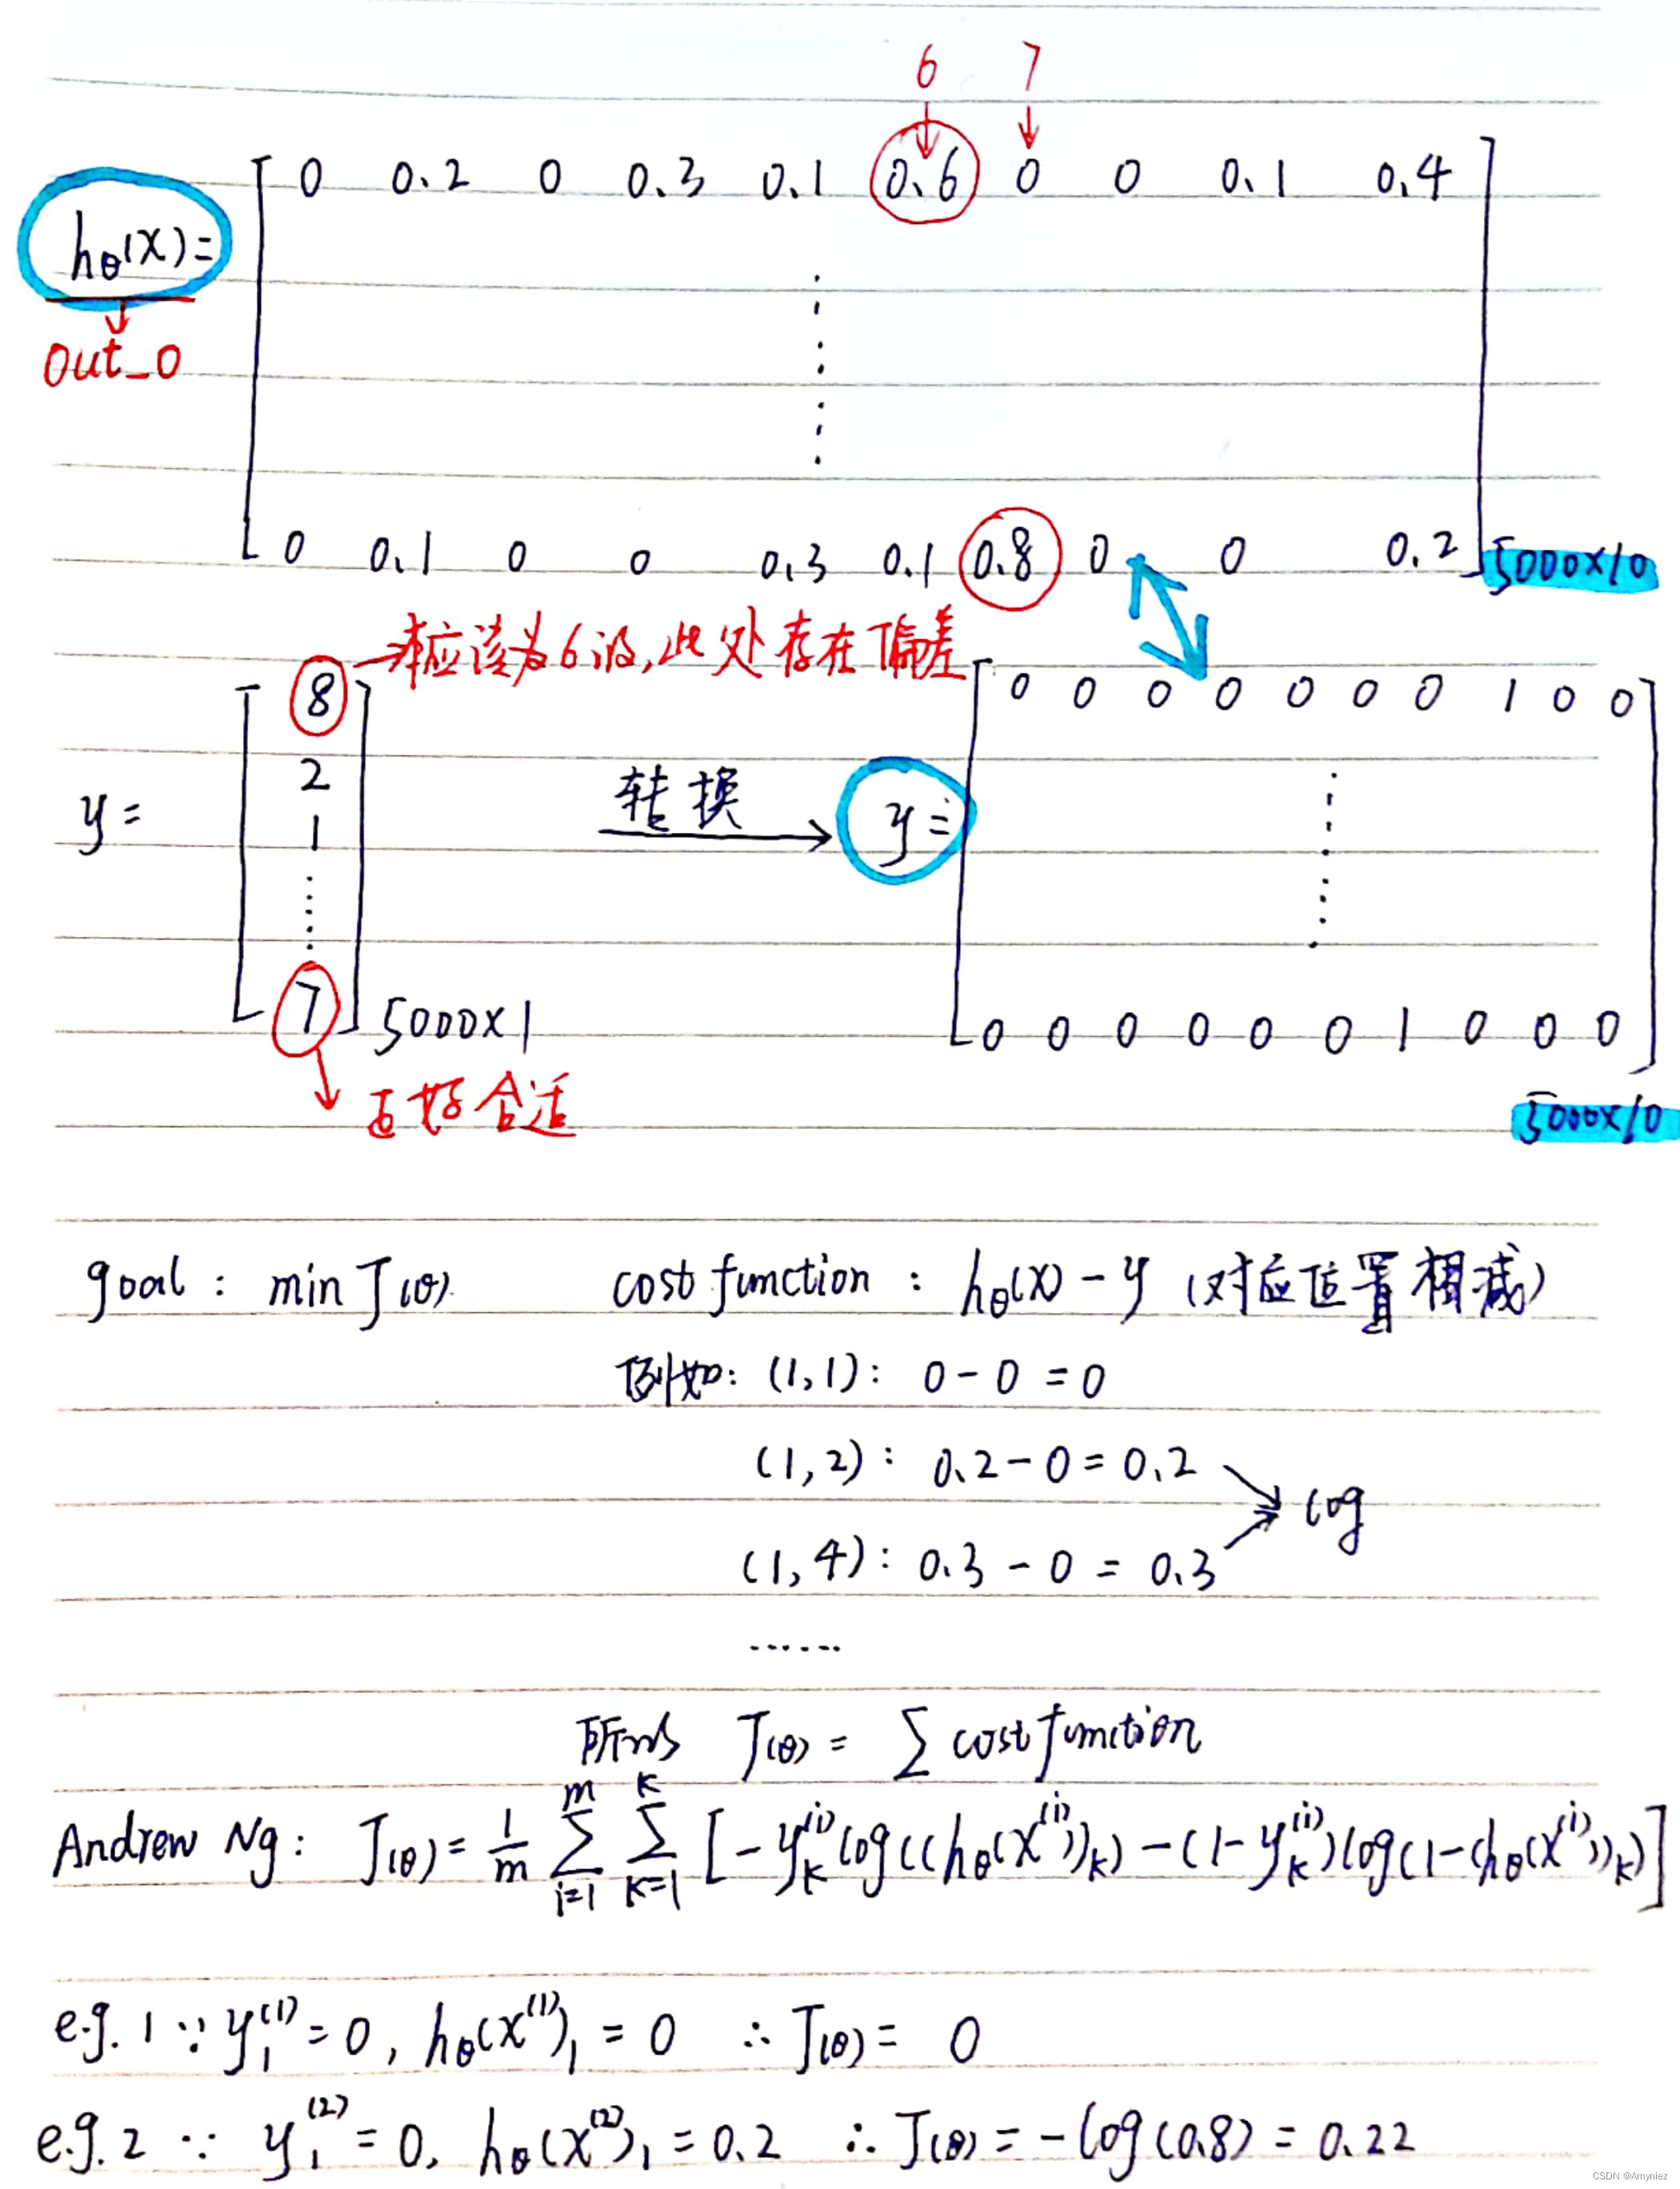 6 7
0 0.2 0 0.3 0.1 0.6 0 0 0.1 0.4
hθ(x)=
out_0
0 0.1 0 0 0.3 0.1 0.8 0 0 0.2 5000×10
本应该为6的,此处存在偏差
8
2
y= 1
7 5000×1
正好合适
转换
y=
0 0 0 0 0 0 0 1 0 0
0 0 0 0 0 0 1 0 0 0
5000×10
goal: min J(θ) cost function: hθ(x)-y (对应位置相减)
例如: (1,1): 0-0=0
(1,2): 0.2-0=0.2
log
(1,4): 0.3-0=0.3
......
所以 J(θ)= ∑ cost function
Andrew Ng: J(θ)= 1/m ∑_{i=1}^{m} ∑_{K=1}^{K} [-y_K^{(i)} log((hθ(x^{(i)}))_K)-(1-y_K^{(i)})log(1-(hθ(x^{(i)}))_K)]
e.g. 1 ∵ y_1^{(1)}=0, hθ(x^{(1)})_1=0 ∴ J(θ)= 0
e.g. 2 ∵ y_1^{(2)}=0, hθ(x^{(2)})_1=0.2 ∴ J(θ)=-log(0.8)=0.22
CSDN @Amyniez